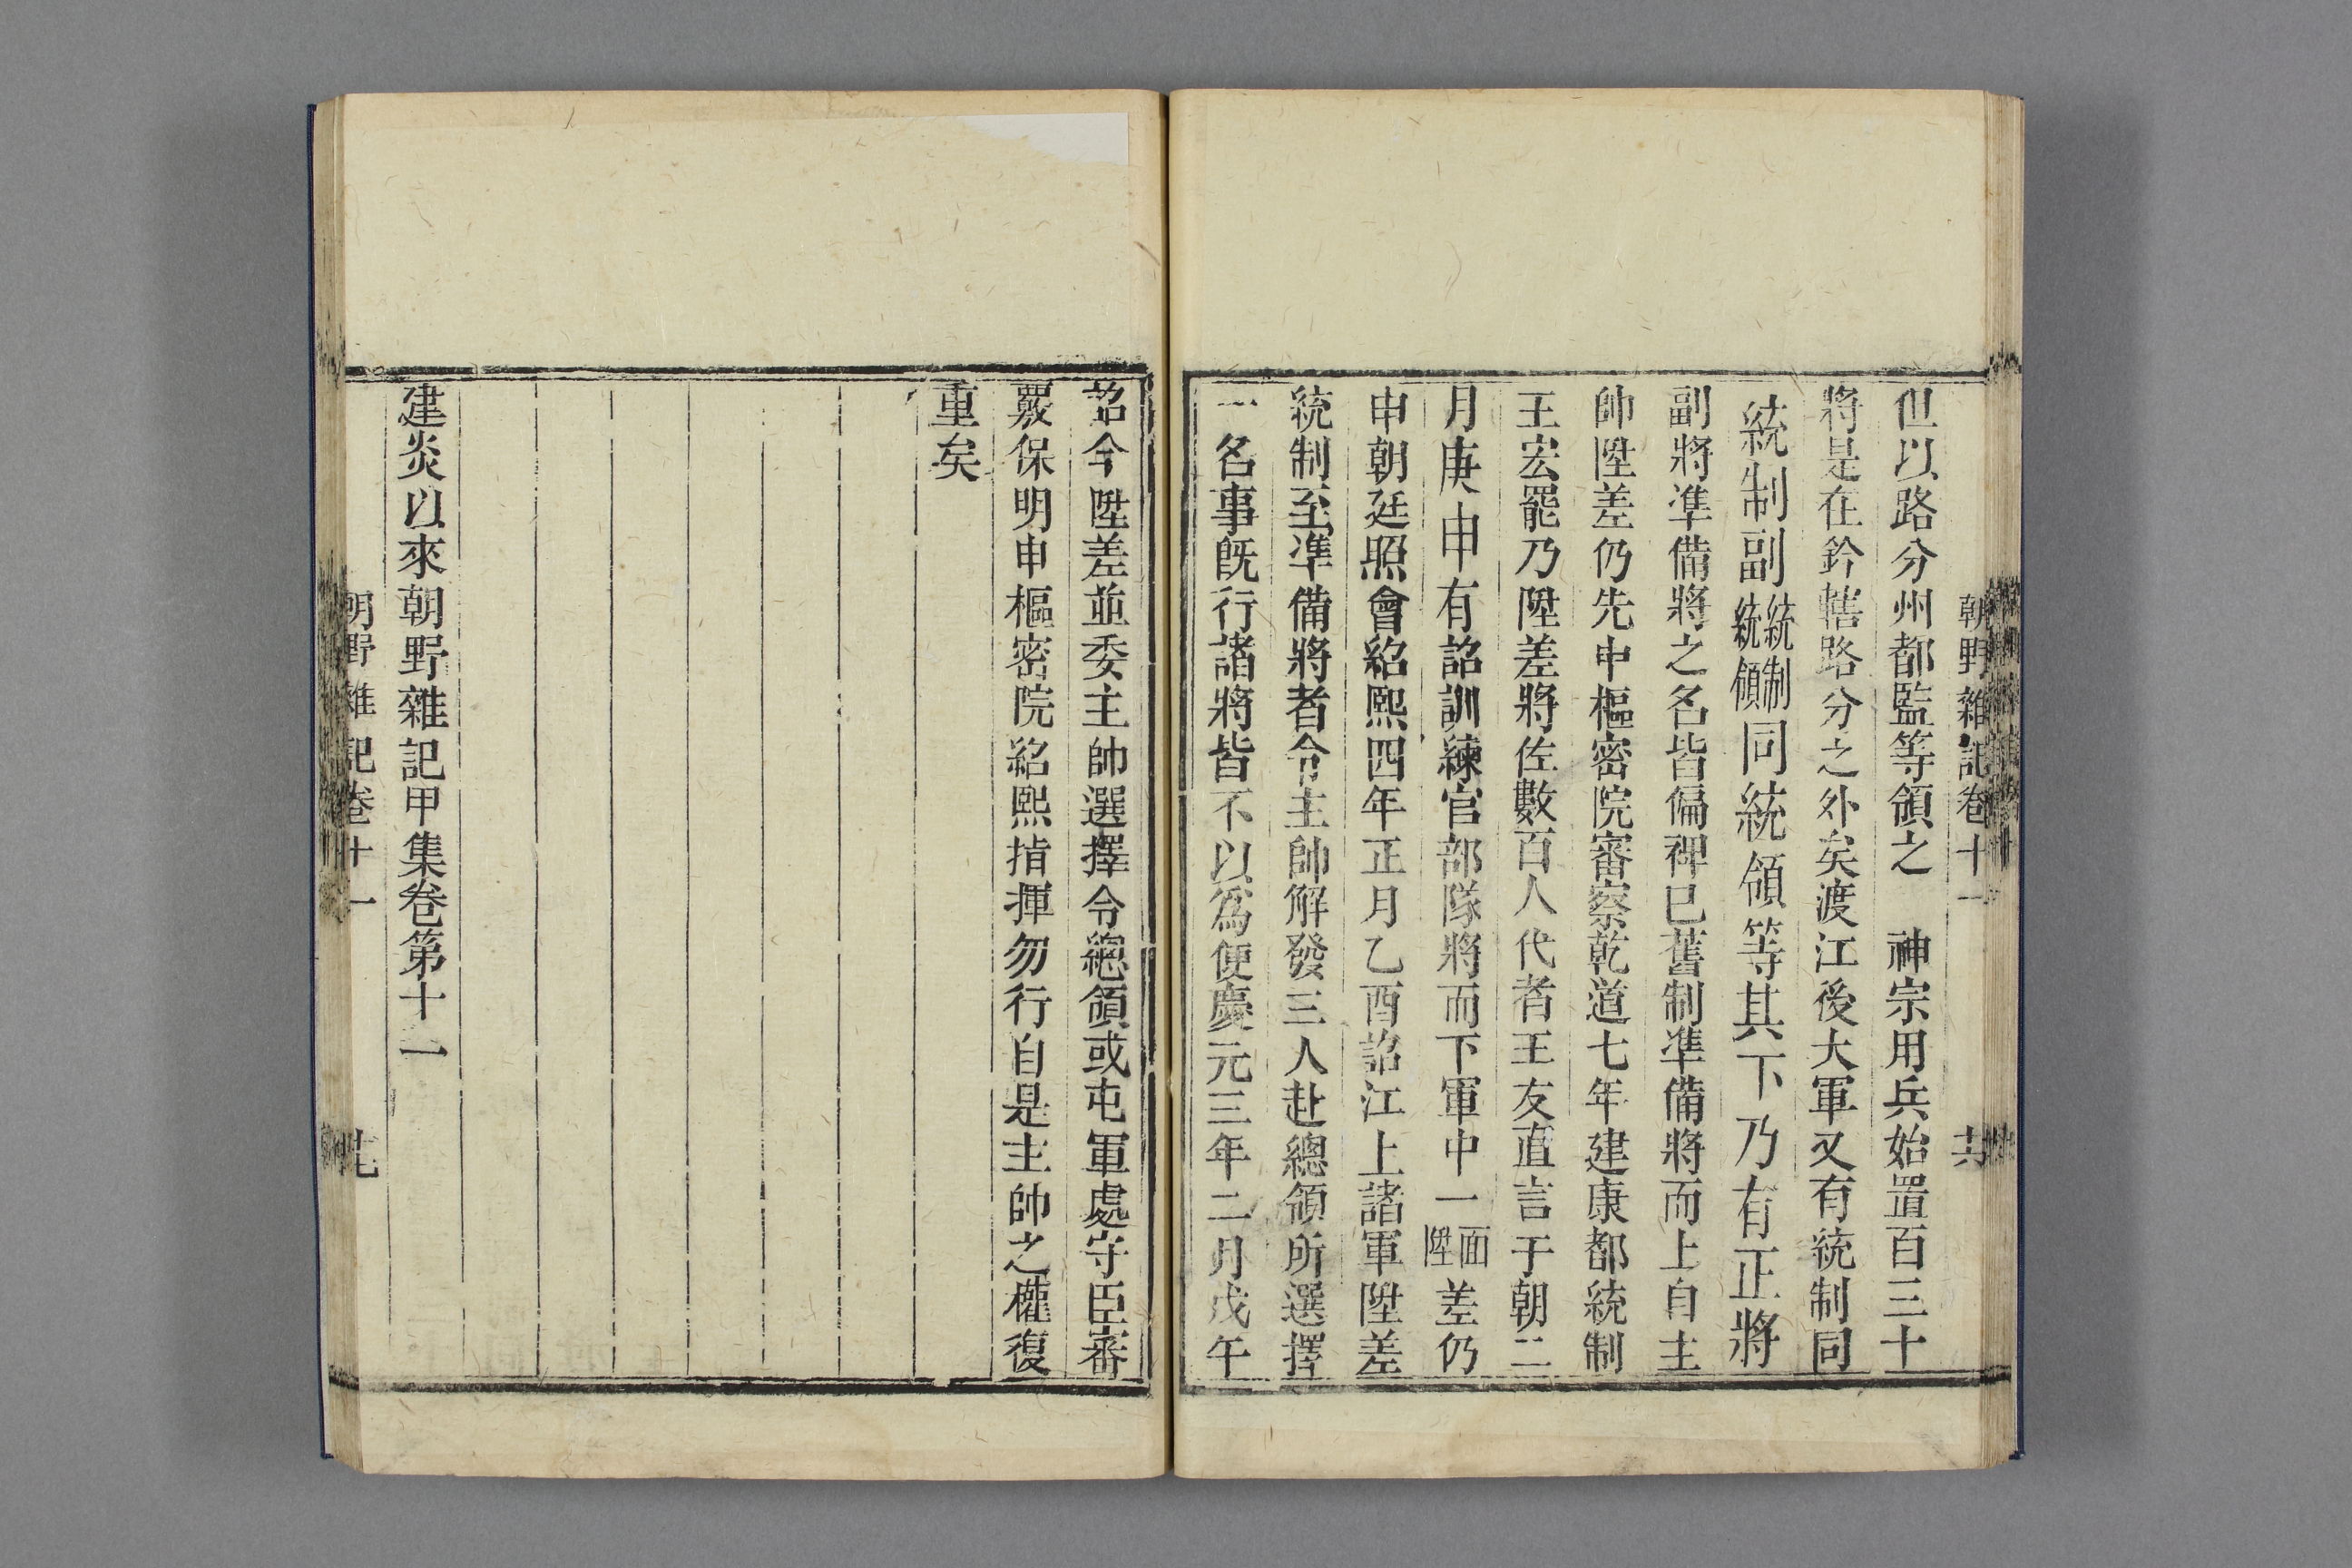 朝野雜記卷十一
但以路分州都監等領之　神宗用兵始置百三十
將是在鈐轄路分之外矣渡江後大軍又有統制同
統制副統制統領同統領等其下乃有正將
副將準備將之名皆偏裨巳舊制準備將而上自主
帥陞差仍先申樞密院審察乾道七年建康都統制
王宏罷乃陞差將佐數百人代者王友直言于朝二
月庚申有詔訓練官部隊將而下軍中一面陞差仍
申朝廷照會紹熙四年正月乙酉詔江上諸軍陞差
統制至準備將者令主帥解發三人赴總領所選擇
一名事旣行諸將皆不以爲便慶元三年二月戊午
詔今陞差並委主帥選擇令總領或屯軍處守臣審
覈保明申樞密院紹熙指揮勿行自是主帥之權復
重矣
建炎以來朝野雜記甲集卷第十一
朝野雜記卷十一